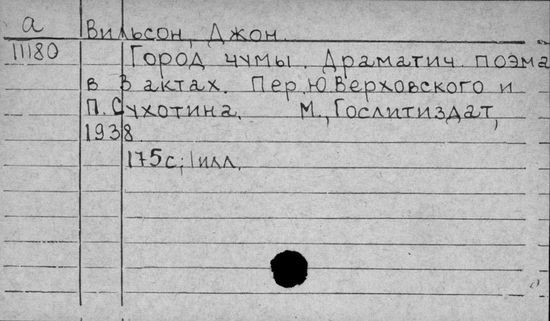 а Вильсон, Джон.
11180 Город чумы. Драматич. поэма
в 3 актах. Пер. Ю. Верховского и
П. Сухотина. М., Гослитиздат,
1938
175с; 1 илл.